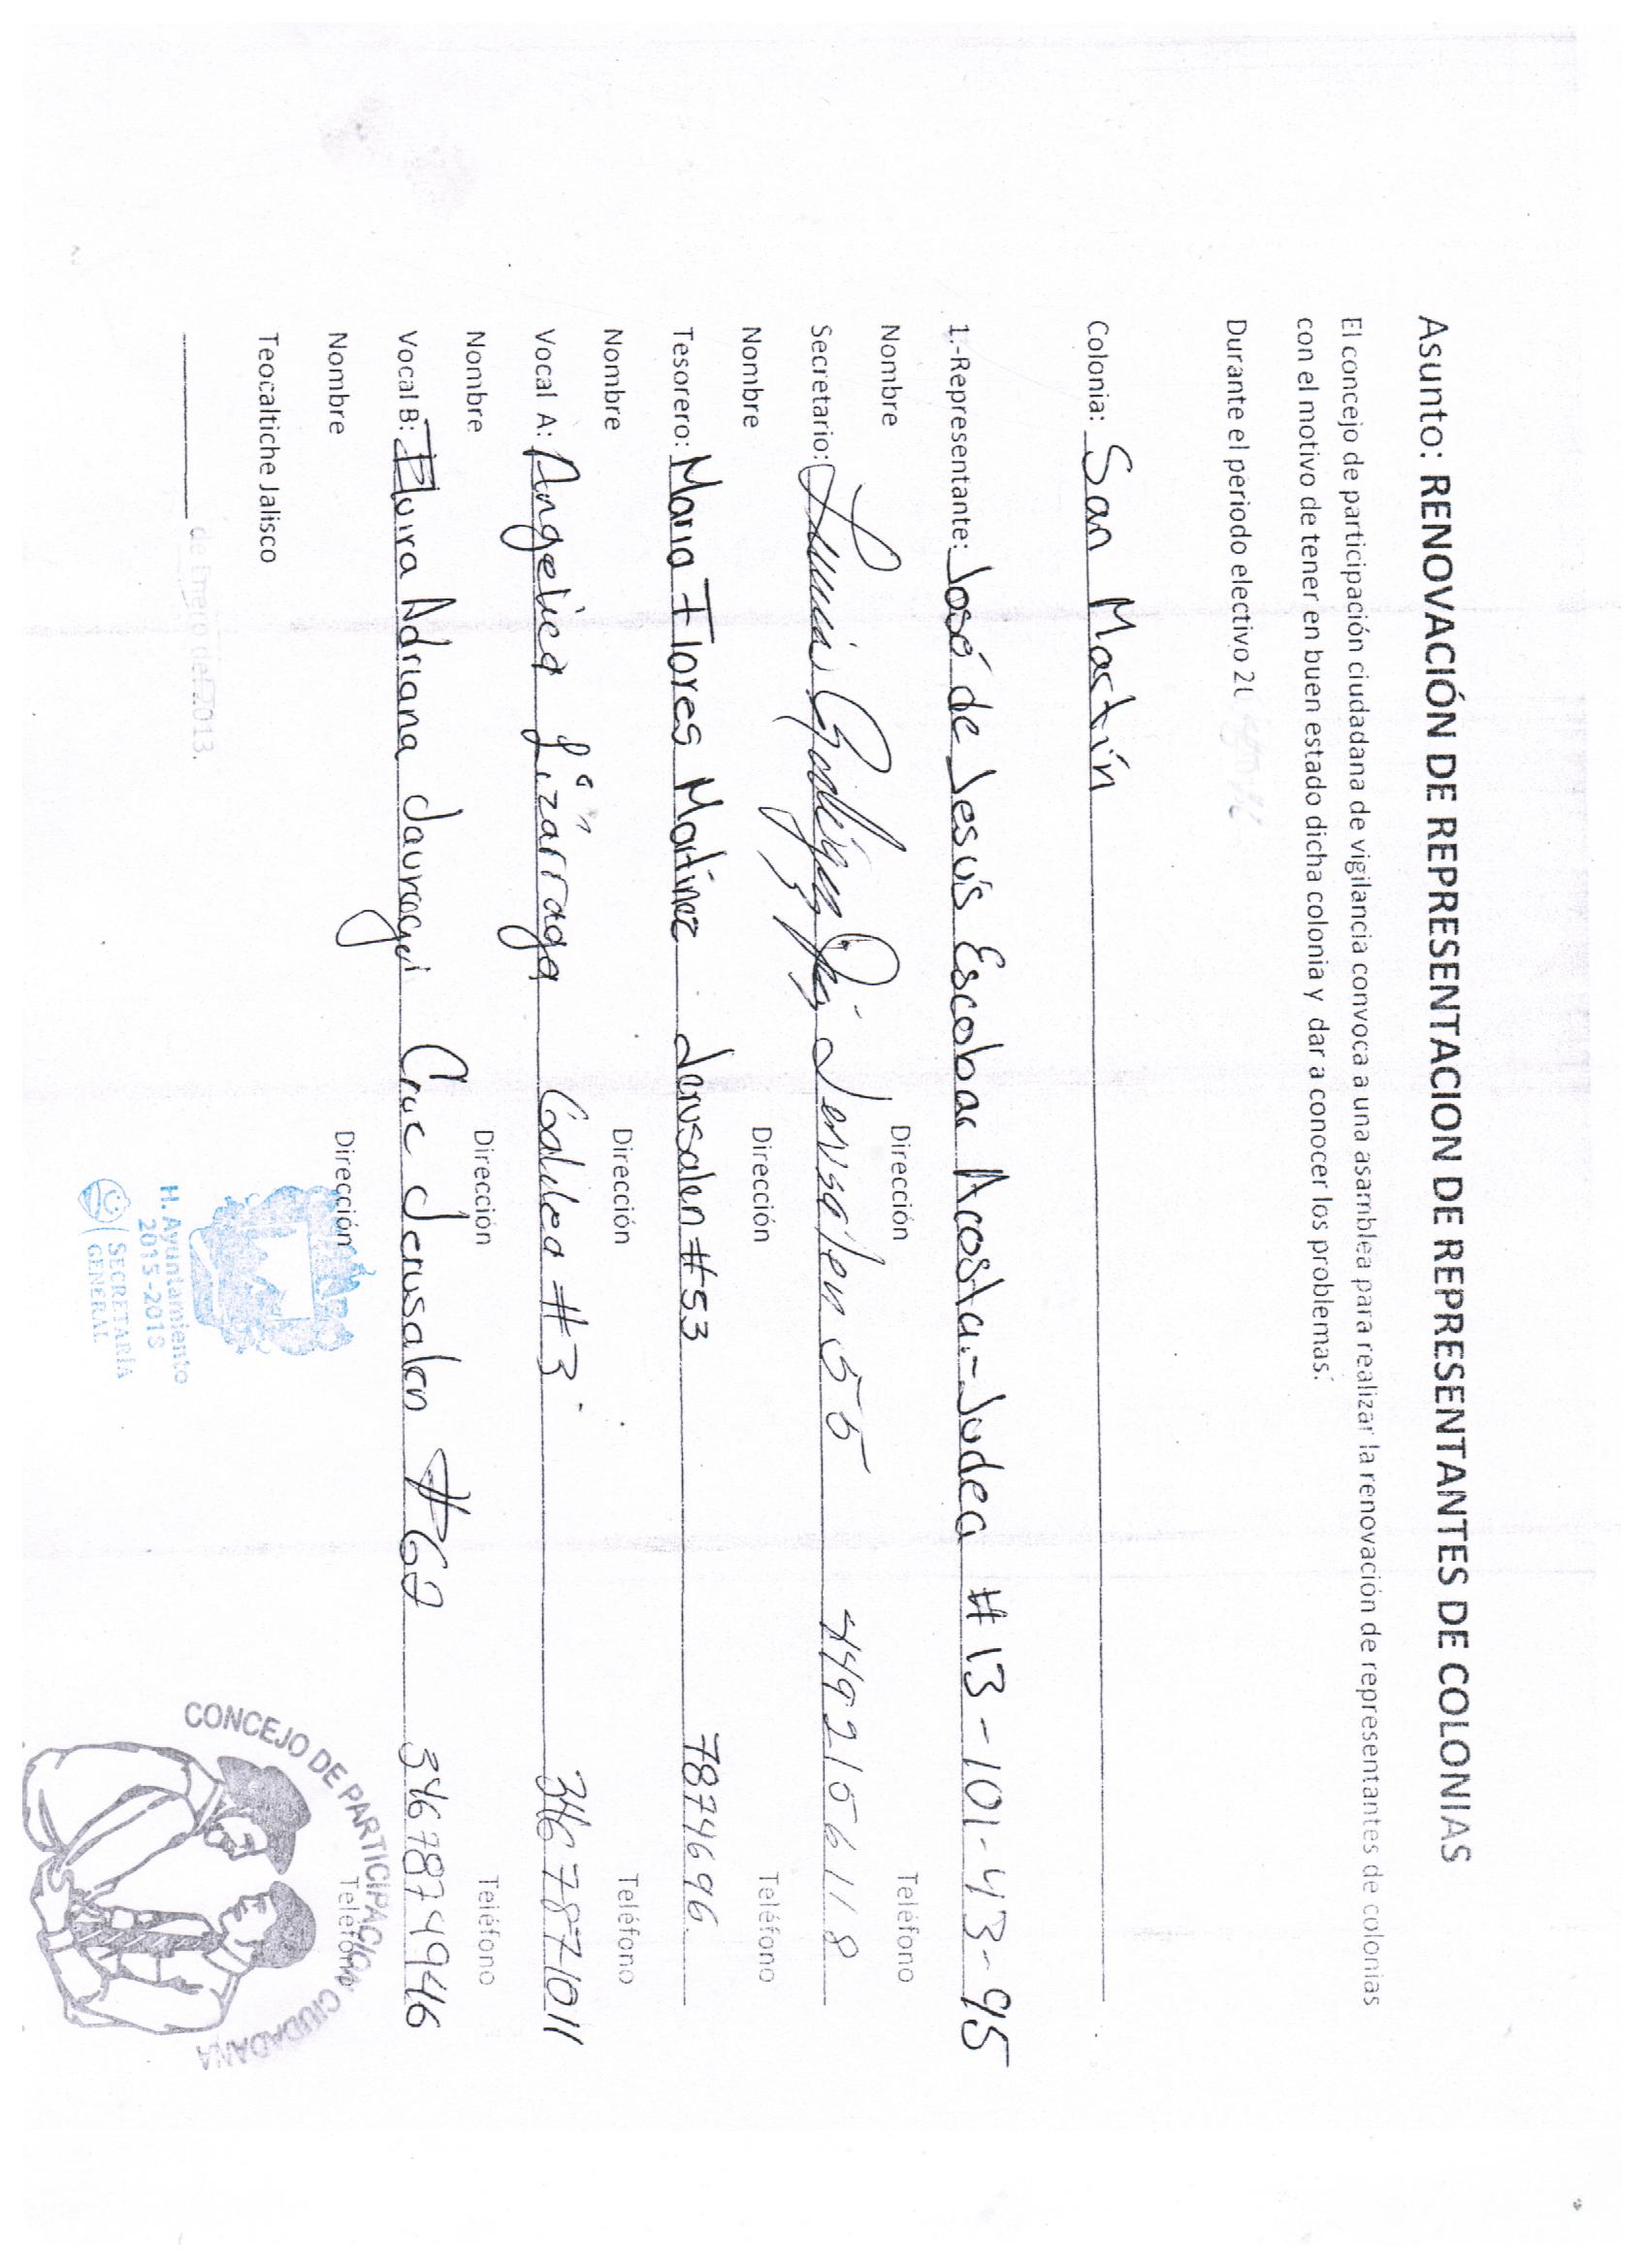 Asunto: RENOVACIÓN DE REPRESENTACION DE REPRESENTANTES DE COLONIAS
El concejo de participación ciudadana de vigilancia convoca a una asamblea para realizar la renovación de representantes de colonias
con el motivo de tener en buen estado dicha colonia y dar a conocer los problemas.
Durante el periodo electivo 20
Colonia: San Martín
1.-Representante: José de Jesús Escobar Acosta.- Judea #13 - 101-43-95
Nombre Dirección Teléfono
Secretario: Jerusalen 55 4492156118
Nombre Dirección Teléfono
Tesorero: Maria Flores Martinez Jerusalen #53 7874696
Nombre Dirección Teléfono
Vocal A: Angelica Lizarraga Galilea #3 346 7871011
Nombre Dirección Teléfono
Vocal B: Elvira Adriana Jauregui Cruz Jerusalen #62 3467874946
Nombre Dirección Teléfono
Teocaltiche Jalisco
de Enero del 2013.
H. Ayuntamiento
2015-2018
SECRETARÍA
GENERAL
CONCEJO DE PARTICIPACIÓN CIUDADANA